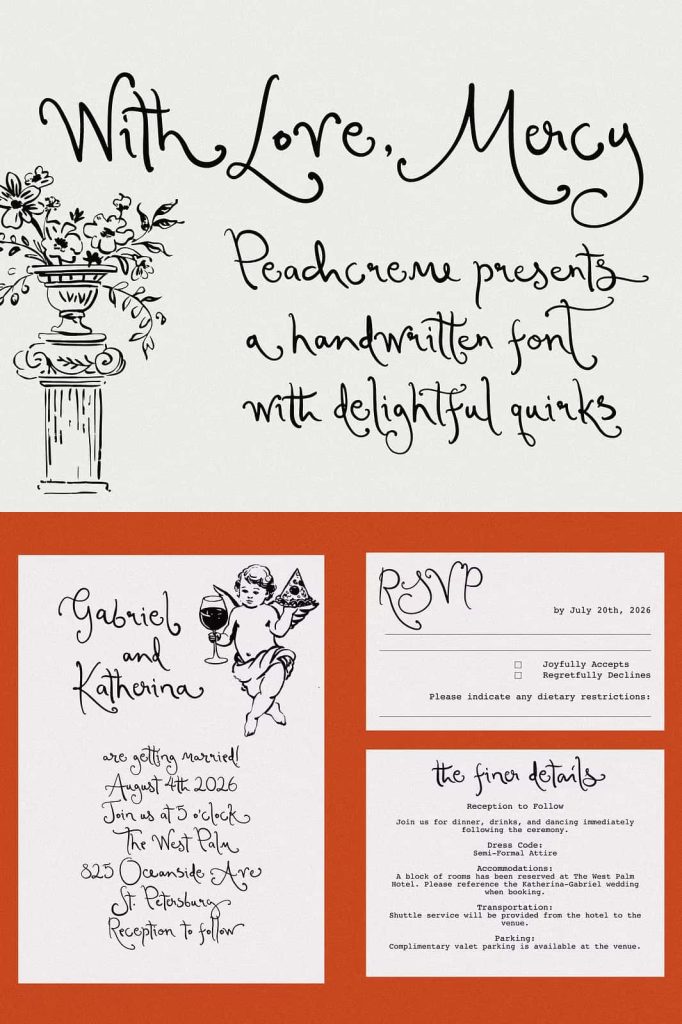 With Love, Mercy
Peachcreme presents
a handwritten font
with delightful quirks
Gabriel
and
Katherina
are getting married!
August 4th 2026
Join us at 5 o'clock
The West Palm
825 Oceanside Ave
St. Petersburg
Reception to follow
RSVP
by July 20th, 2026
Joyfully Accepts
Regretfully Declines
Please indicate any dietary restrictions:
the finer details
Reception to Follow
Join us for dinner, drinks, and dancing immediately
following the ceremony.
Dress Code:
Semi-Formal Attire
Accommodations:
A block of rooms has been reserved at The West Palm
Hotel. Please reference the Katherina-Gabriel wedding
when booking.
Transportation:
Shuttle service will be provided from the hotel to the
venue.
Parking:
Complimentary valet parking is available at the venue.